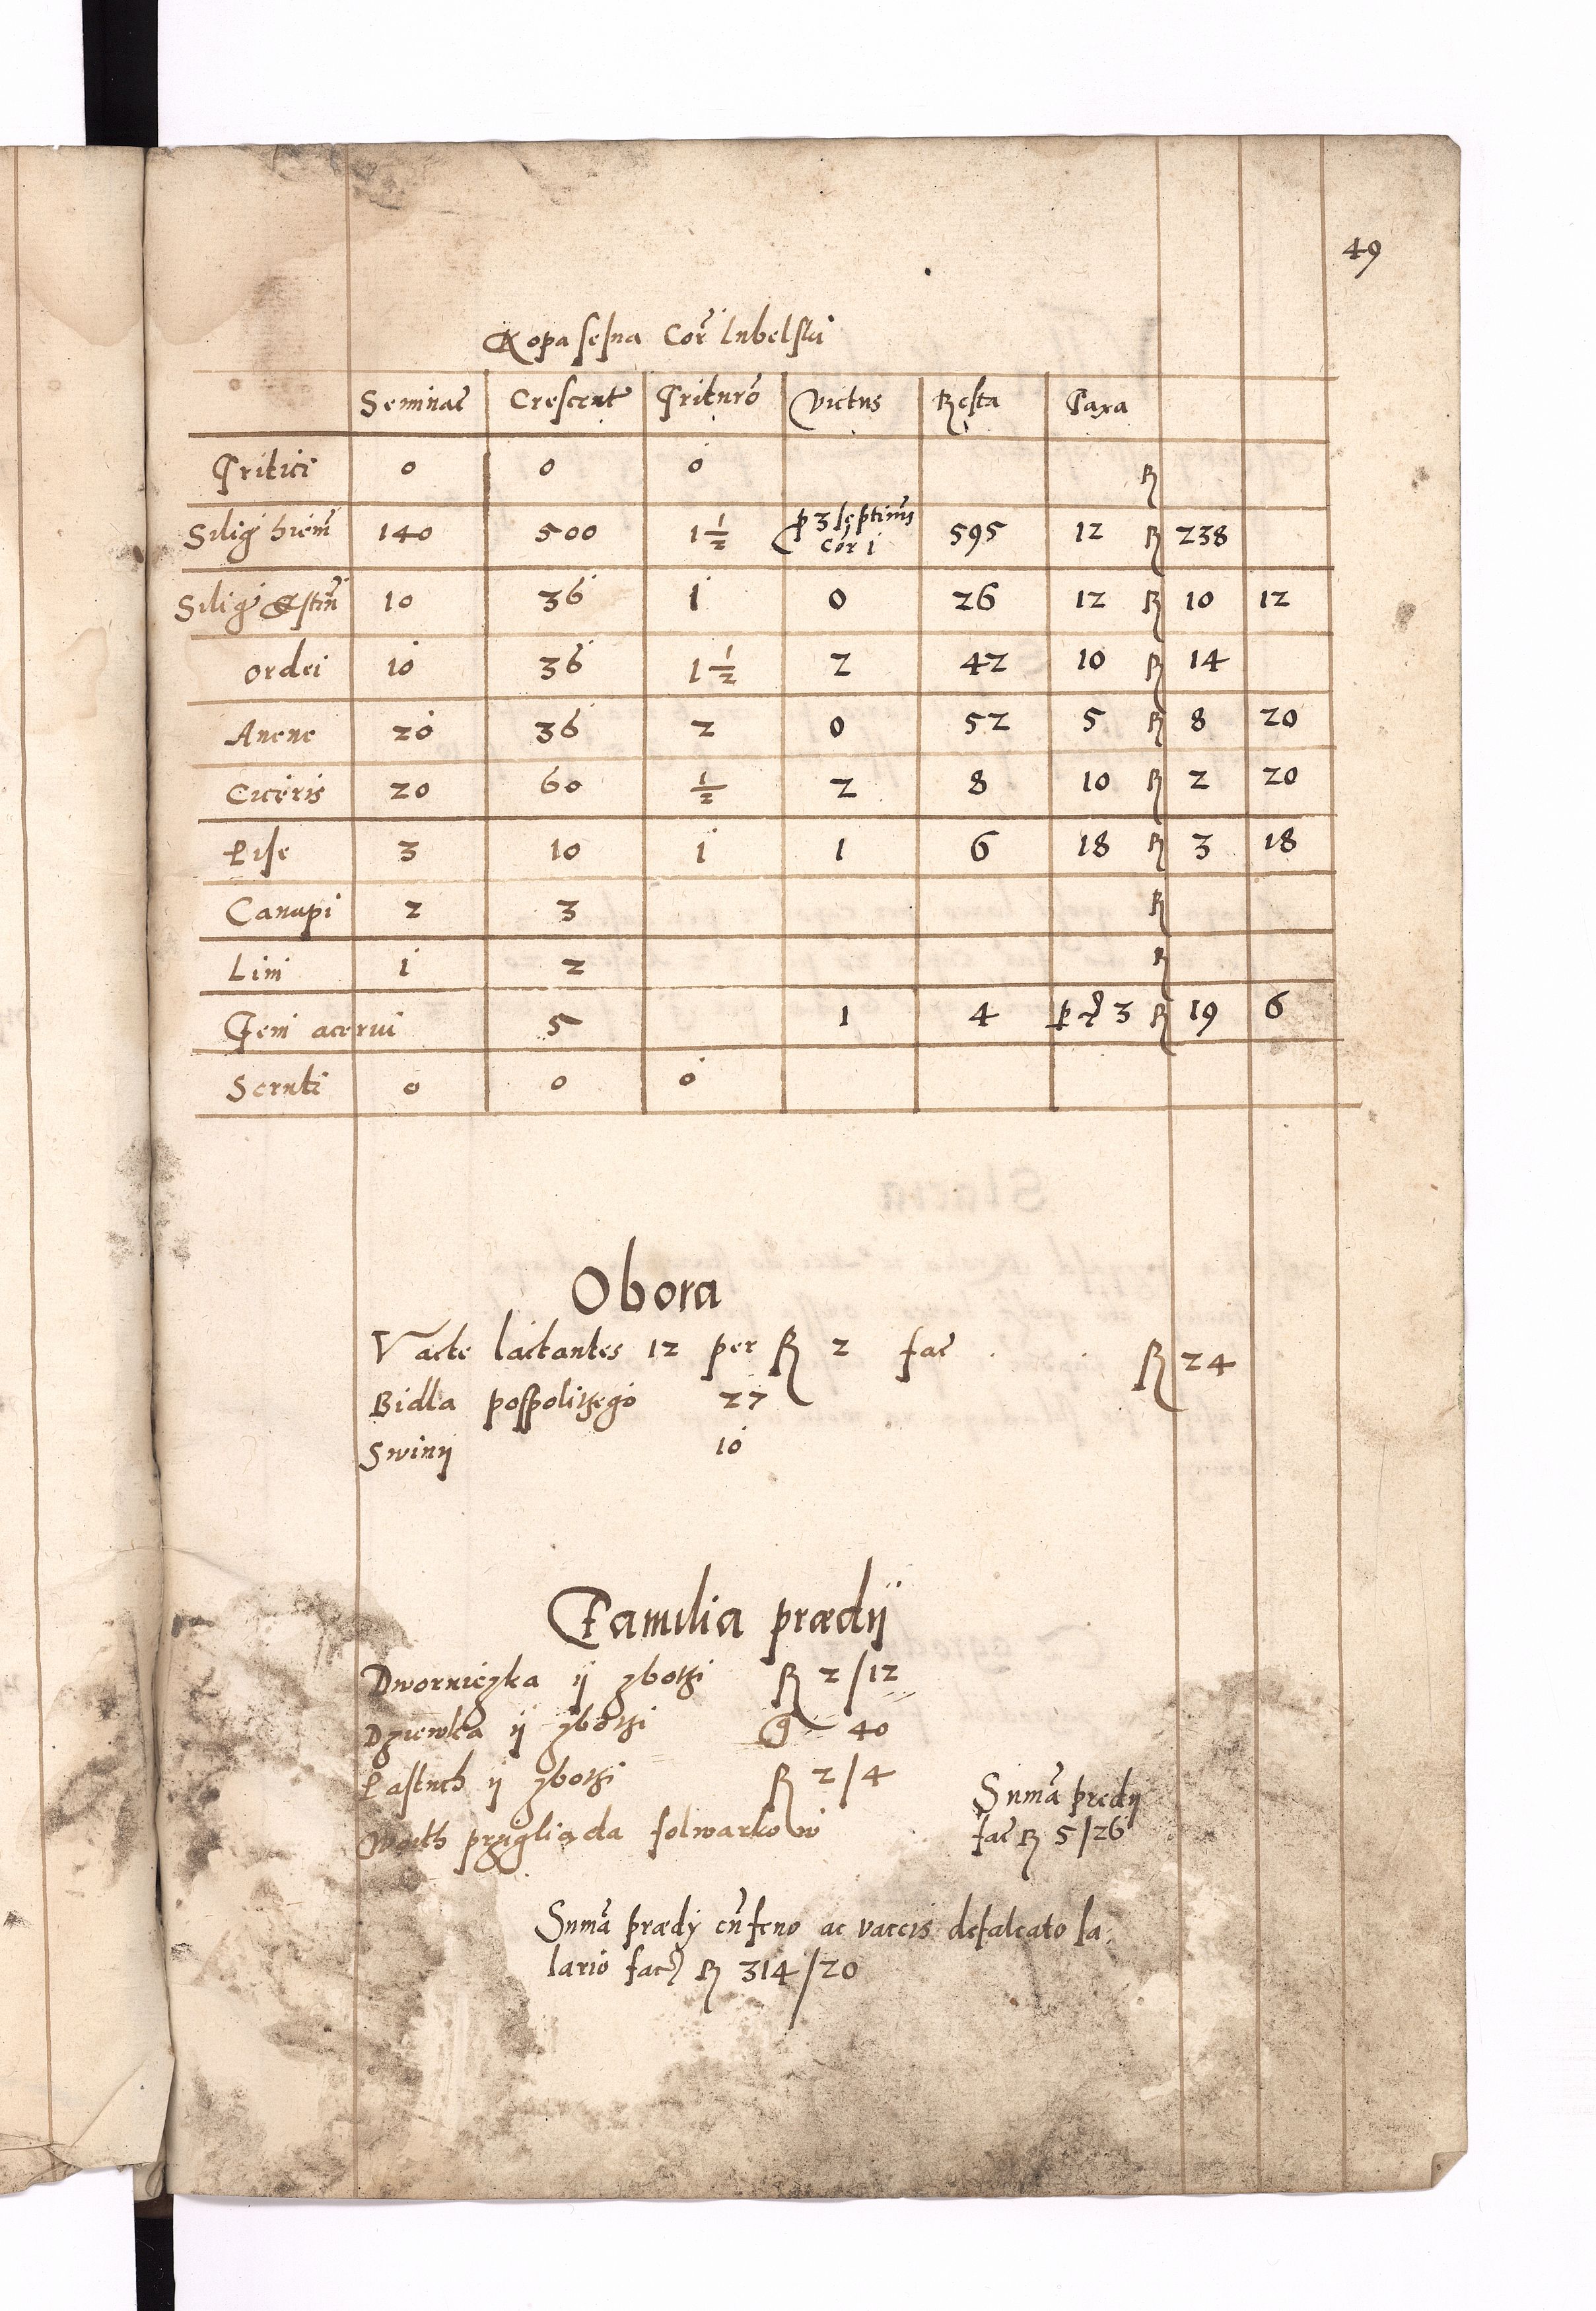 49
Kopa lesna Cor̃ lubelski
Seminac̃ Crescent Trituro Victus Resta Taxa
Tritici 0 0 0 R
Silig̃ hiem̃ 140 500 1 1/2 p 3 septimũs Cor 1 595 12 R 238
Silig̃ æstiñ 10 36 1 0 26 12 R 10 12
ordei 10 36 1 1/2 2 42 10 R 14
Auene 20 36 2 0 52 5 R 8 20
Ciceris 20 60 1/2 2 8 10 R 2 20
Pise 3 10 1 1 6 18 R 3 18
Canapi 2 3 R
Lini 1 2 R
Feni acerui 5 1 4 3 R 19 6
Scruti 0 0 0
Obora
Vacte lactantes 12 per R 2 fac̃ R 24
Bidla pospolitzego 27
Swinÿ 10
Familia prædij
Dworniczka ij zbotzi R 2/12
Dziewka ij zbotzi g 40
Pastuch ij zbotzi R 2/4
Woith przigliąda folwarkow
Sum̃a prædij
fac̃ R 5/26
Sum̃a prædij cũ feno ac vaccis defalcato sa
lario fac R 314/20